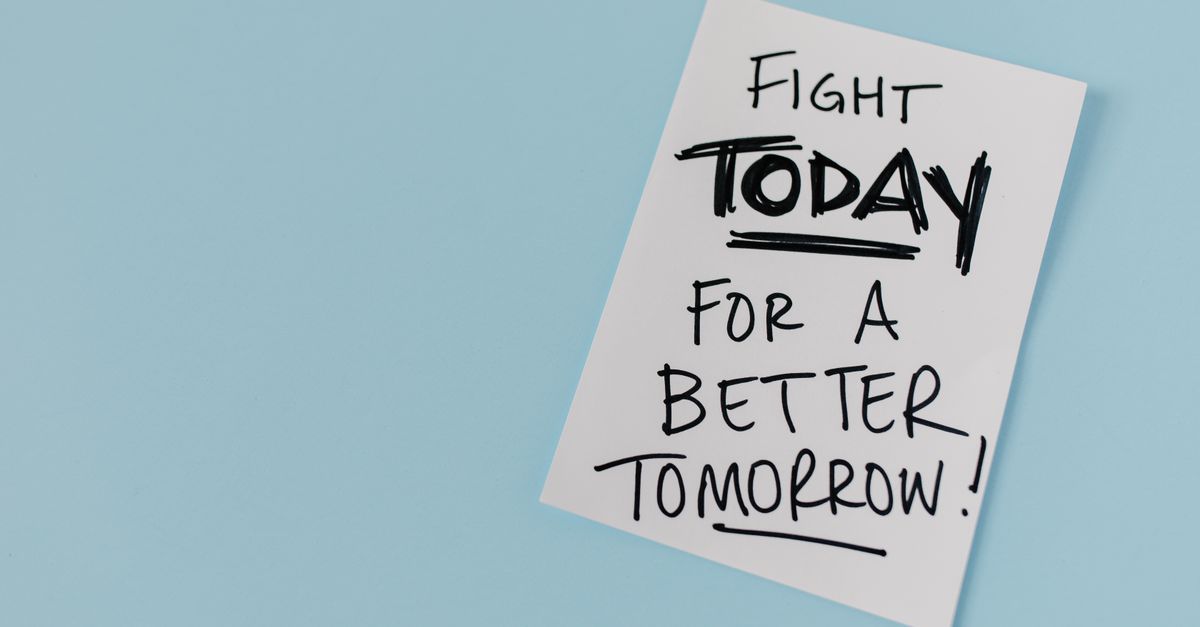 FIGHT
TODAY
FOR A
BETTER
TOMORROW!